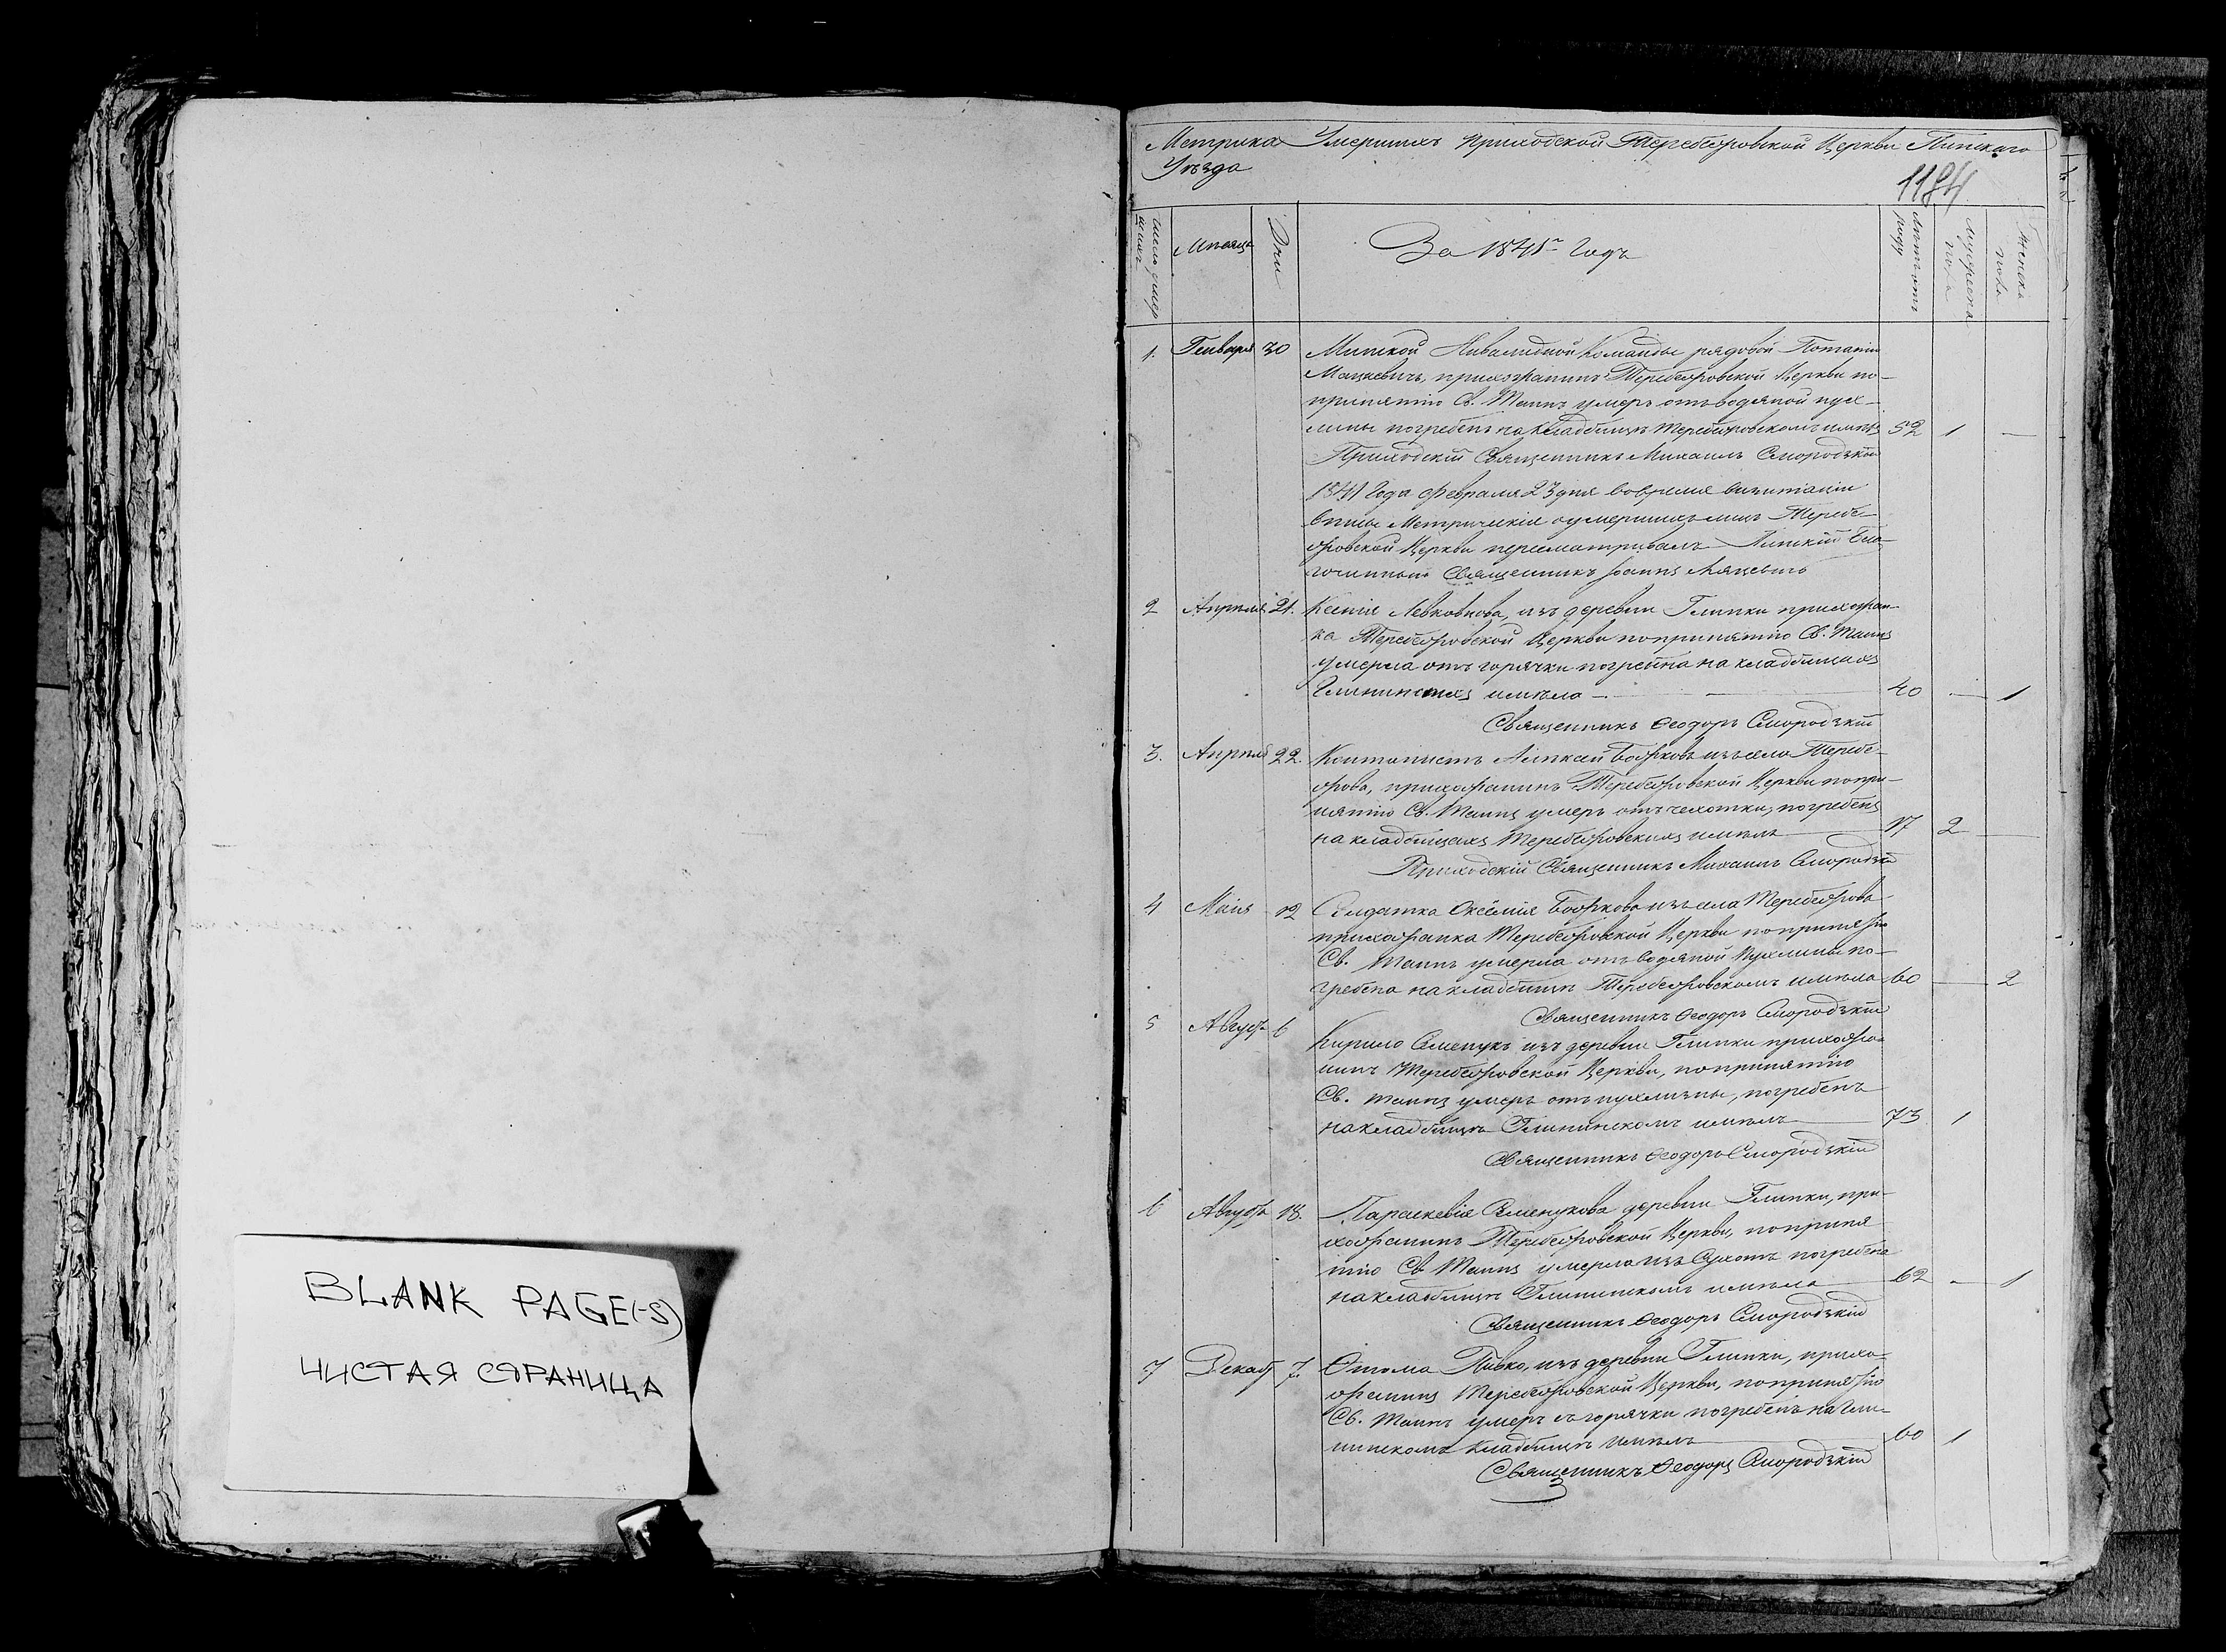 BLANK PAGE(-S)
ЧИСТАЯ СТРАНИЦА
Метрика Умершихъ Приходской Теребежовской Церкви Пинскаго
Уѣзда
1184
Число умер
шихъ
Мѣсяцъ
Дни
За 1841й Годъ
Лѣтъ отъ
роду
мужеска
пола
Женска
пола
1. Генваря 30 Минской Инвалидной Команды рядовой Потапій
Мацкевичъ, прихожанинъ Теребежовской Церкви по-
принятію Св. Таинъ умеръ отъ водяной пух-
лины погребенъ на Кладбищѣ Теребежовскомъ имѣлъ 52 1 —
Приходскій Священникъ Михаилъ Смородзкій
1841 Года Февраля 23 дня вовремя визитаціи
Метрическіе о умершихъ лицъ Теребе-
жовской Церкви пересматривалъ Пинскій Бла-
гочинный Священникъ Іоаннъ
2 Апрѣля 21. Ксенія Левковцова, изъ деревни Глинки прихожан-
ка Теребежовской Церкви по принятію Св. Таинъ
умерла отъ горячки погребена на кладбищахъ
Глининскихъ имѣла — 40 — 1
Священникъ Ѳеодоръ Смородзкій
3. Апрѣля 22. Кантонистъ Алексѣй Божковъ изъ села Теребе-
жова, прихожанинъ Теребежовской Церкви попри-
нятію Св. Таинъ умеръ отъ чехотки, погребенъ
на кладбищахъ Теребежовскихъ имѣлъ 17 2 —
Приходскій Священникъ Михаилъ Смородзкій
4 Маія 12 Солдатка Оксѣмія Божкова изъ села Теребежова
прихожанка Теребежовской Церкви по принятію
Св. Таинъ умерла отъ водяной пухлины по-
гребена на кладбищѣ Теребежовскомъ имѣла 60 — 2
Священникъ Ѳеодоръ Смородзкій
5 Августа 6 Кирило Семенукъ изъ деревни Глинки прихожа-
нинъ Теребежовской Церкви, по принятію
Св. Таинъ умеръ отъ пухлизны, погребенъ
на кладбищѣ Глининскомъ имѣлъ 73 1
Священникъ Ѳеодоръ Смородзкій
6 Августа 18. Параскевія Семенукова деревни Глинки, при-
хожанинъ Теребежовской Церкви, по приня
тію Св. Таинъ умерла изъ Сухотъ погребена
на кладбищѣ Глининскомъ имѣла 62 — 1
Священникъ Ѳеодоръ Смородзкій
7 Декаб. 7. Ѳтома Пивко, изъ деревни Глинки, прихо-
жанинъ Теребежовской Церкви, по принятію
Св. Таинъ умеръ съ горячки погребенъ на Гли-
нинскомъ Кладбищѣ имѣлъ 60 1
Священникъ Ѳеодоръ Смородзкій